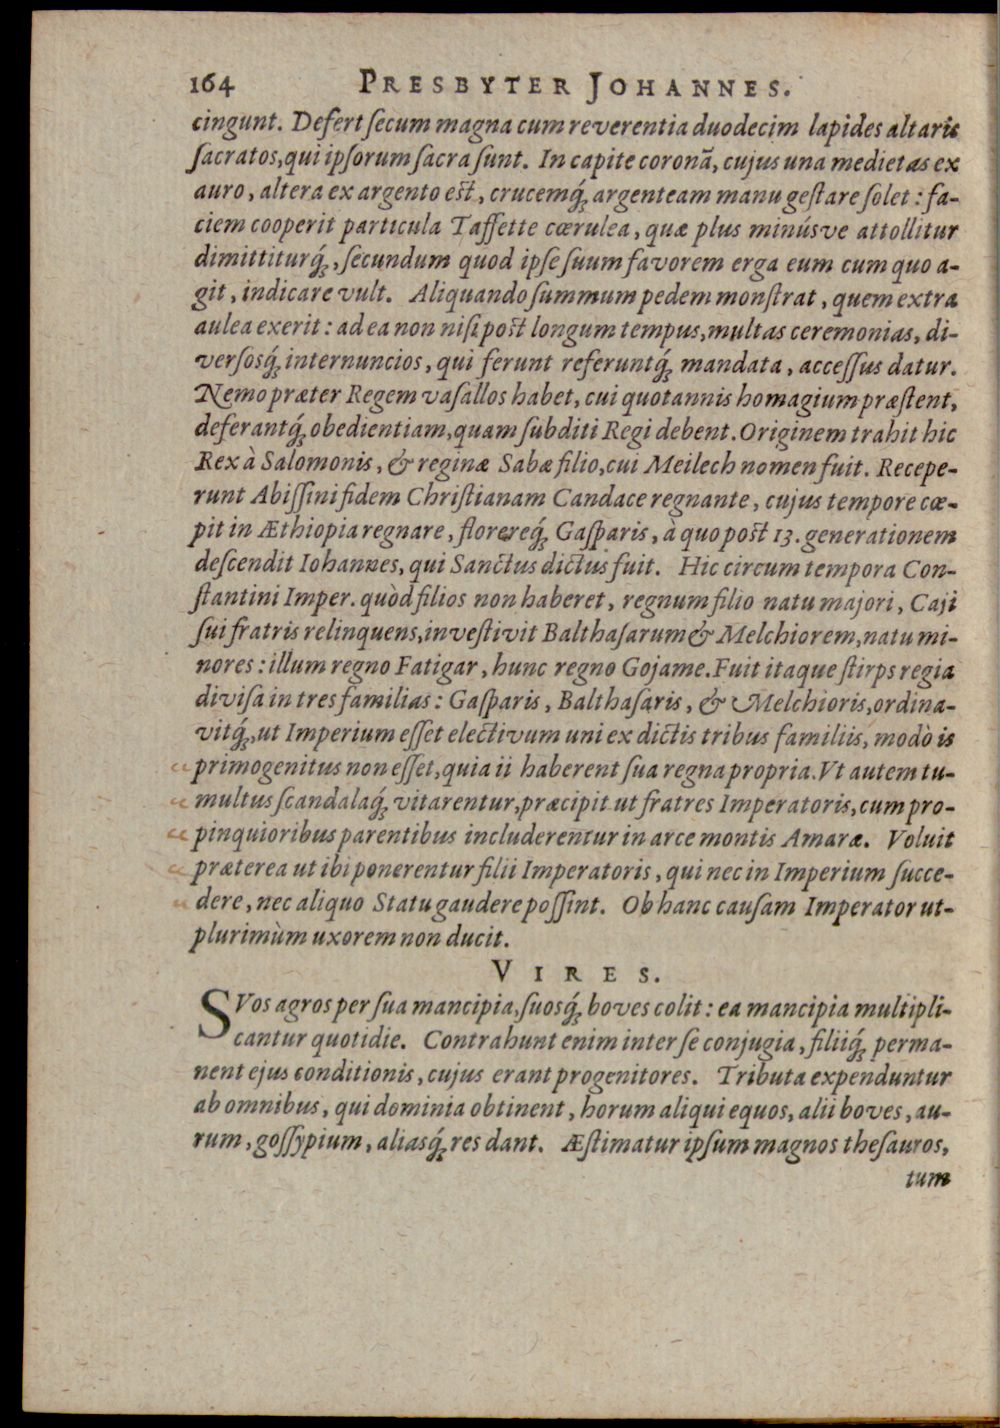 164 PRESBYTER JOHANNES.
cingunt. Defert ſecum magna cum reverentia duodecim lapides altaris
ſacratos, qui ipſorum ſacra ſunt. In capite coronã, cujus una medietas ex
auro, altera ex argento eſt, crucemq́; argenteam manu geſtare ſolet: fa-
ciem cooperit particula Taffette cœrulea, quæ plus minúsve attollitur
dimittiturq́;, ſecundum quod ipſe ſuum favorem erga eum cum quo a-
git, indicare vult. Aliquando ſummum pedem monſtrat, quem extra
aulea exerit: ad ea non niſi poſt longum tempus, multas ceremonias, di-
verſosq́; internuncios, qui ferunt referuntq́; mandata, acceſſus datur.
Nemo præter Regem vaſallos habet, cui quotannis homagium præſtent,
deferantq́; obedientiam, quam ſubditi Regi debent. Originem trahit hic
Rex à Salomonis, & reginæ Sabæ filio, cui Meilech nomen fuit. Recepe-
runt Abiſſini fidem Chriſtianam Candace regnante, cujus tempore cœ-
pit in Æthiopia regnare, florereq́; Gaſparis, à quo poſt 13. generationem
deſcendit Iohannes, qui Sanctus dictus fuit. Hic circum tempora Con-
ſtantini Imper. quòd filios non haberet, regnum filio natu majori, Caji
ſui fratris relinquens, inveſtivit Balthaſarum & Melchiorem, natu mi-
nores: illum regno Fatigar, hunc regno Gojame. Fuit itaque ſtirps regia
diviſa in tres familias: Gaſparis, Balthaſaris, & Melchioris, ordina-
vitq́;, ut Imperium eſſet electivum uni ex dictis tribus familiis, modò is
„ primogenitus non eſſet, quia ii haberent ſua regna propria. Vt autem tu-
„ multus ſcandalaq́; vitarentur, præcipit ut fratres Imperatoris, cum pro-
„ pinquioribus parentibus includerentur in arce montis Amaræ. Voluit
„ præterea ut ibi ponerentur filii Imperatoris, qui nec in Imperium ſucce-
„ dere, nec aliquo Statu gaudere poſſint. Ob hanc cauſam Imperator ut-
plurimùm uxorem non ducit.
VIRES.
SVos agros per ſua mancipia, ſuosq́; boves colit: ea mancipia multipli-
cantur quotidie. Contrahunt enim inter ſe conjugia, filiiq́; perma-
nent ejus conditionis, cujus erant progenitores. Tributa expenduntur
ab omnibus, qui dominia obtinent, horum aliqui equos, alii boves, au-
rum, goſſypium, aliasq́; res dant. Æſtimatur ipſum magnos theſauros,
tum